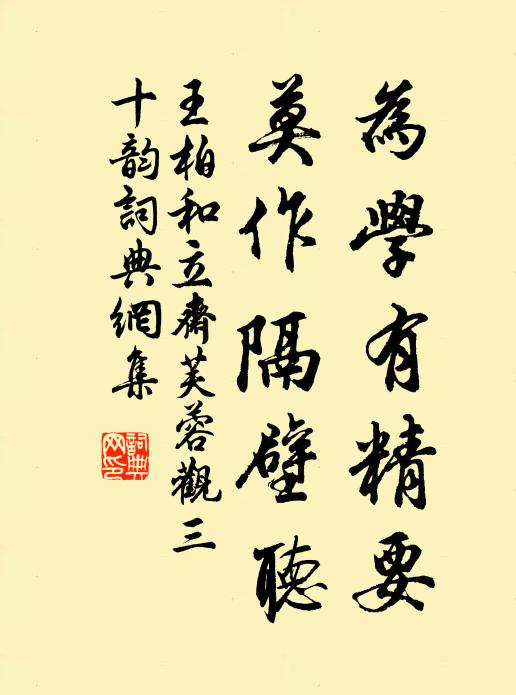 為學有精要
莫作隔壁聽
王柏和立齋芙蓉觀三
十韵詞典網集
詞典
网印